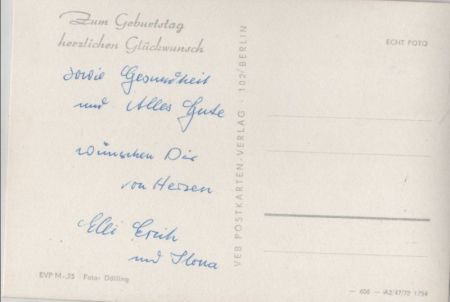 Zum Geburtstag
herzlichen Glückwunsch
sowie Gesundheit
und Alles Gute
wünschen Dir
von Herzen
Elli Erich
und Ilona
EVP M -,25 Foto: Dölling
VEB POSTKARTEN-VERLAG · 102 BERLIN
ECHT FOTO
— 606 — A2/47/72 1754